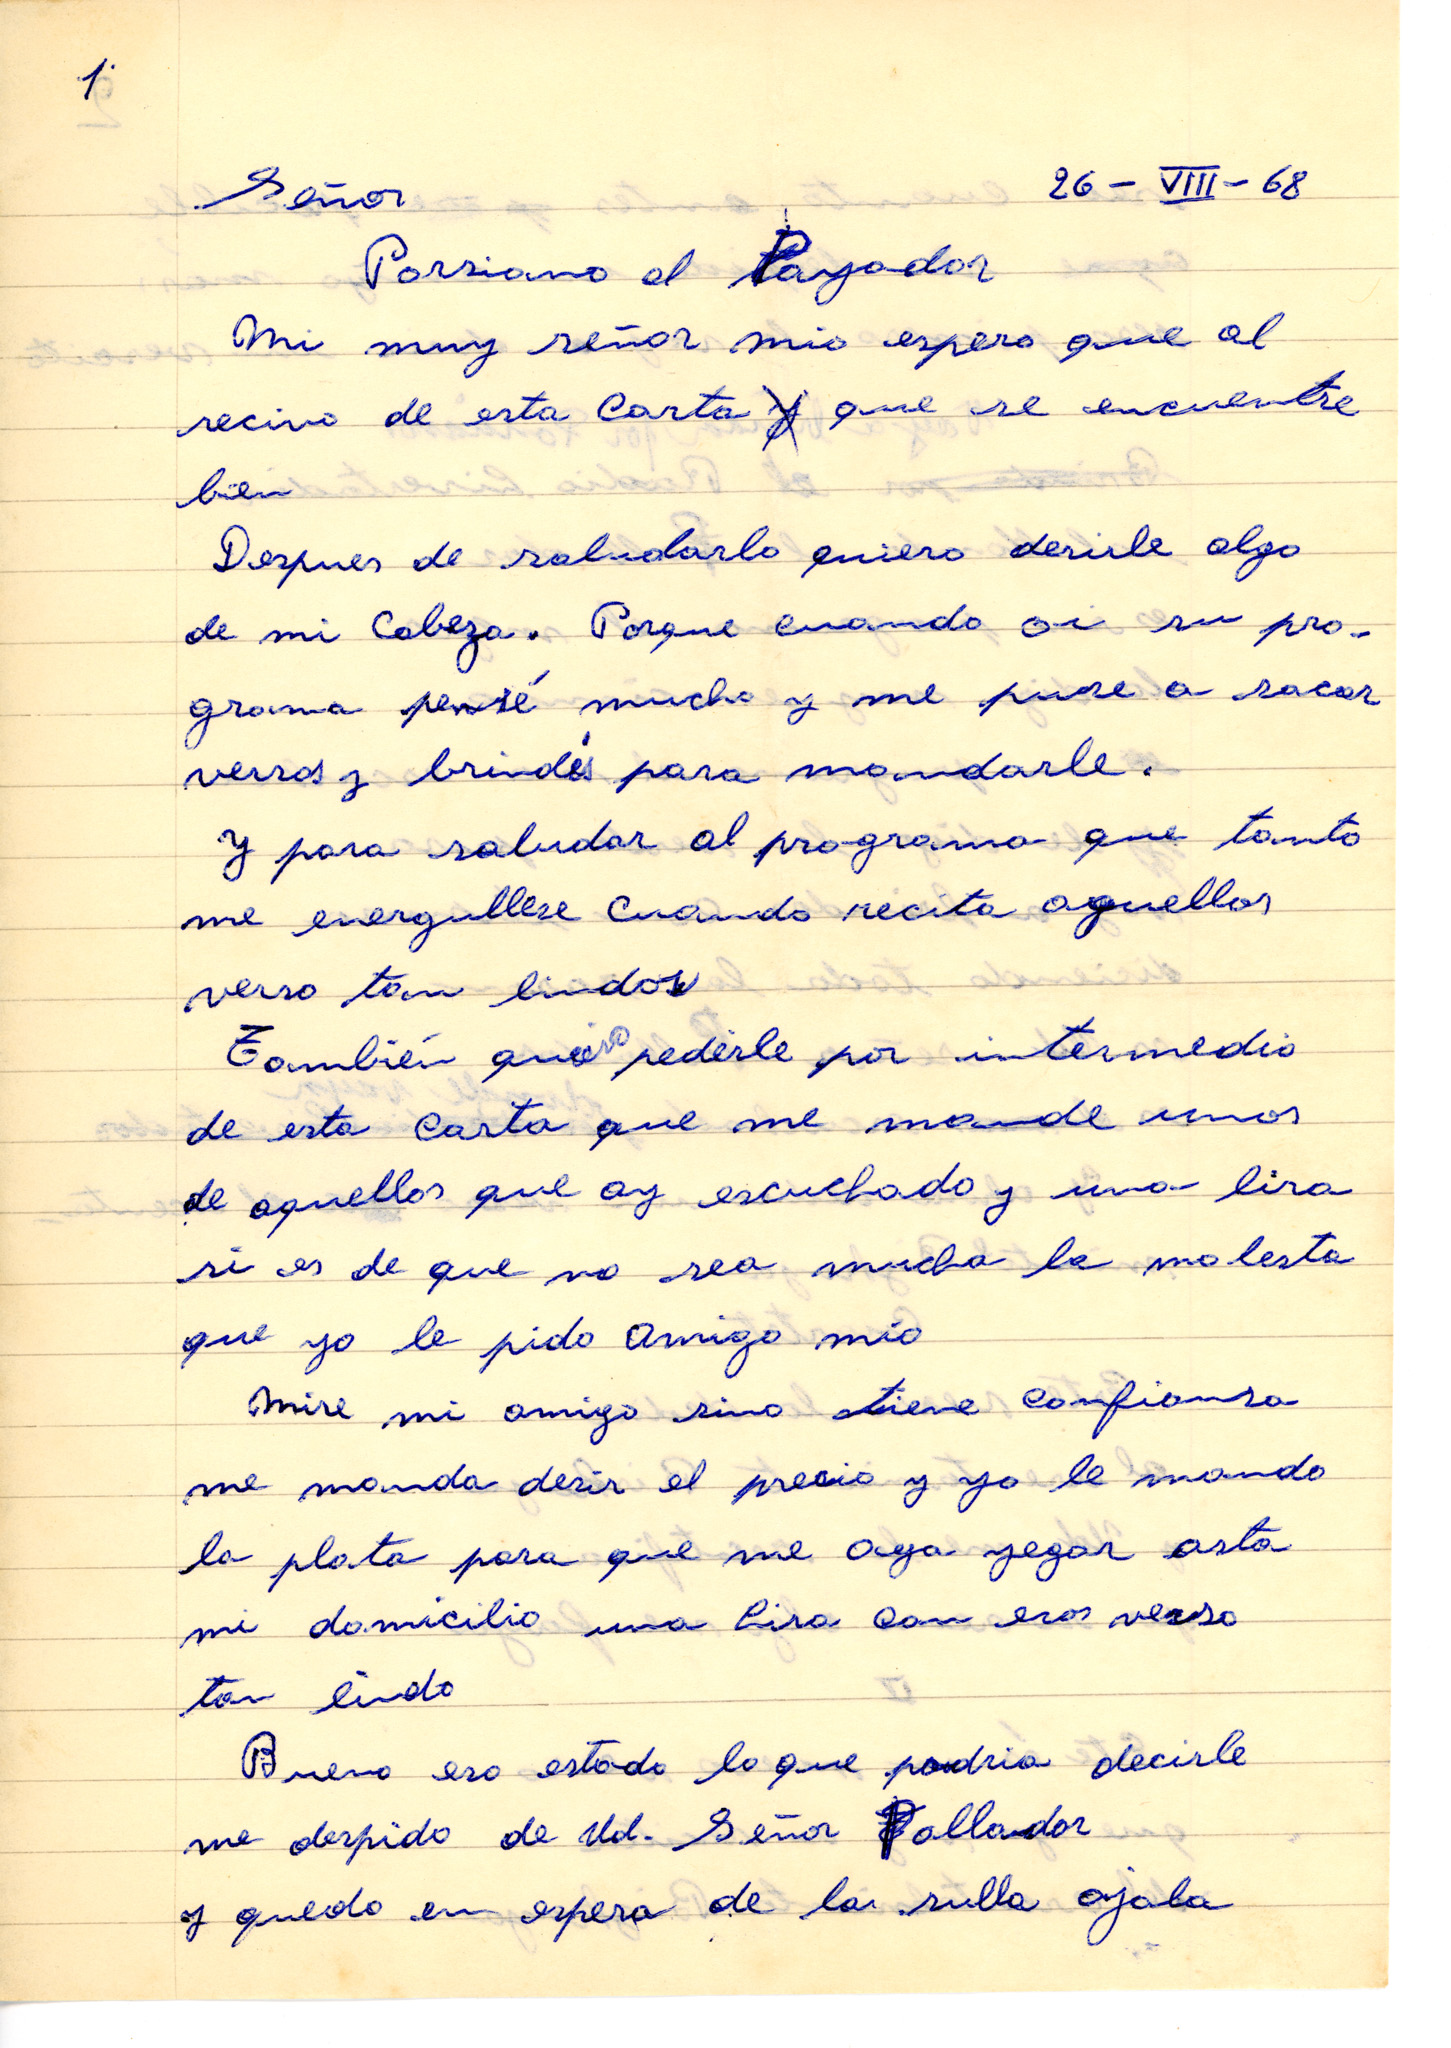 1.
Señor 26 - VIII - 68
Porsiano el Payador
Mi muy señor mio espero que al
recivo de esta Carta que se encuentre
bien
Despues de saludarlo quiero desirle algo
de mi Cabeza. Porque cuando oi su pro-
grama pensé mucho y me puse a sacar
versos y brindis para mandarle.
Y para saludar al programa que tanto
me energullese Cuando recita aquellos
verso tan lindos
También quiero pedirle por intermedio
de esta Carta que me mande unos
de aquellos que ay escuchado y una lira
si es de que no sea mucha la molesta
que yo le pido Amigo mio
Mire mi amigo sino tiene Confiansa
me manda desir el precio y yo le mando
la plata para que me aga yegar asta
mi domicilio una Lira Con esos verso
tan lindo
Bueno eso estodo lo que podria decirle
me despido de Ud. Señor Pallador
y quedo en espera de la sulla ojala